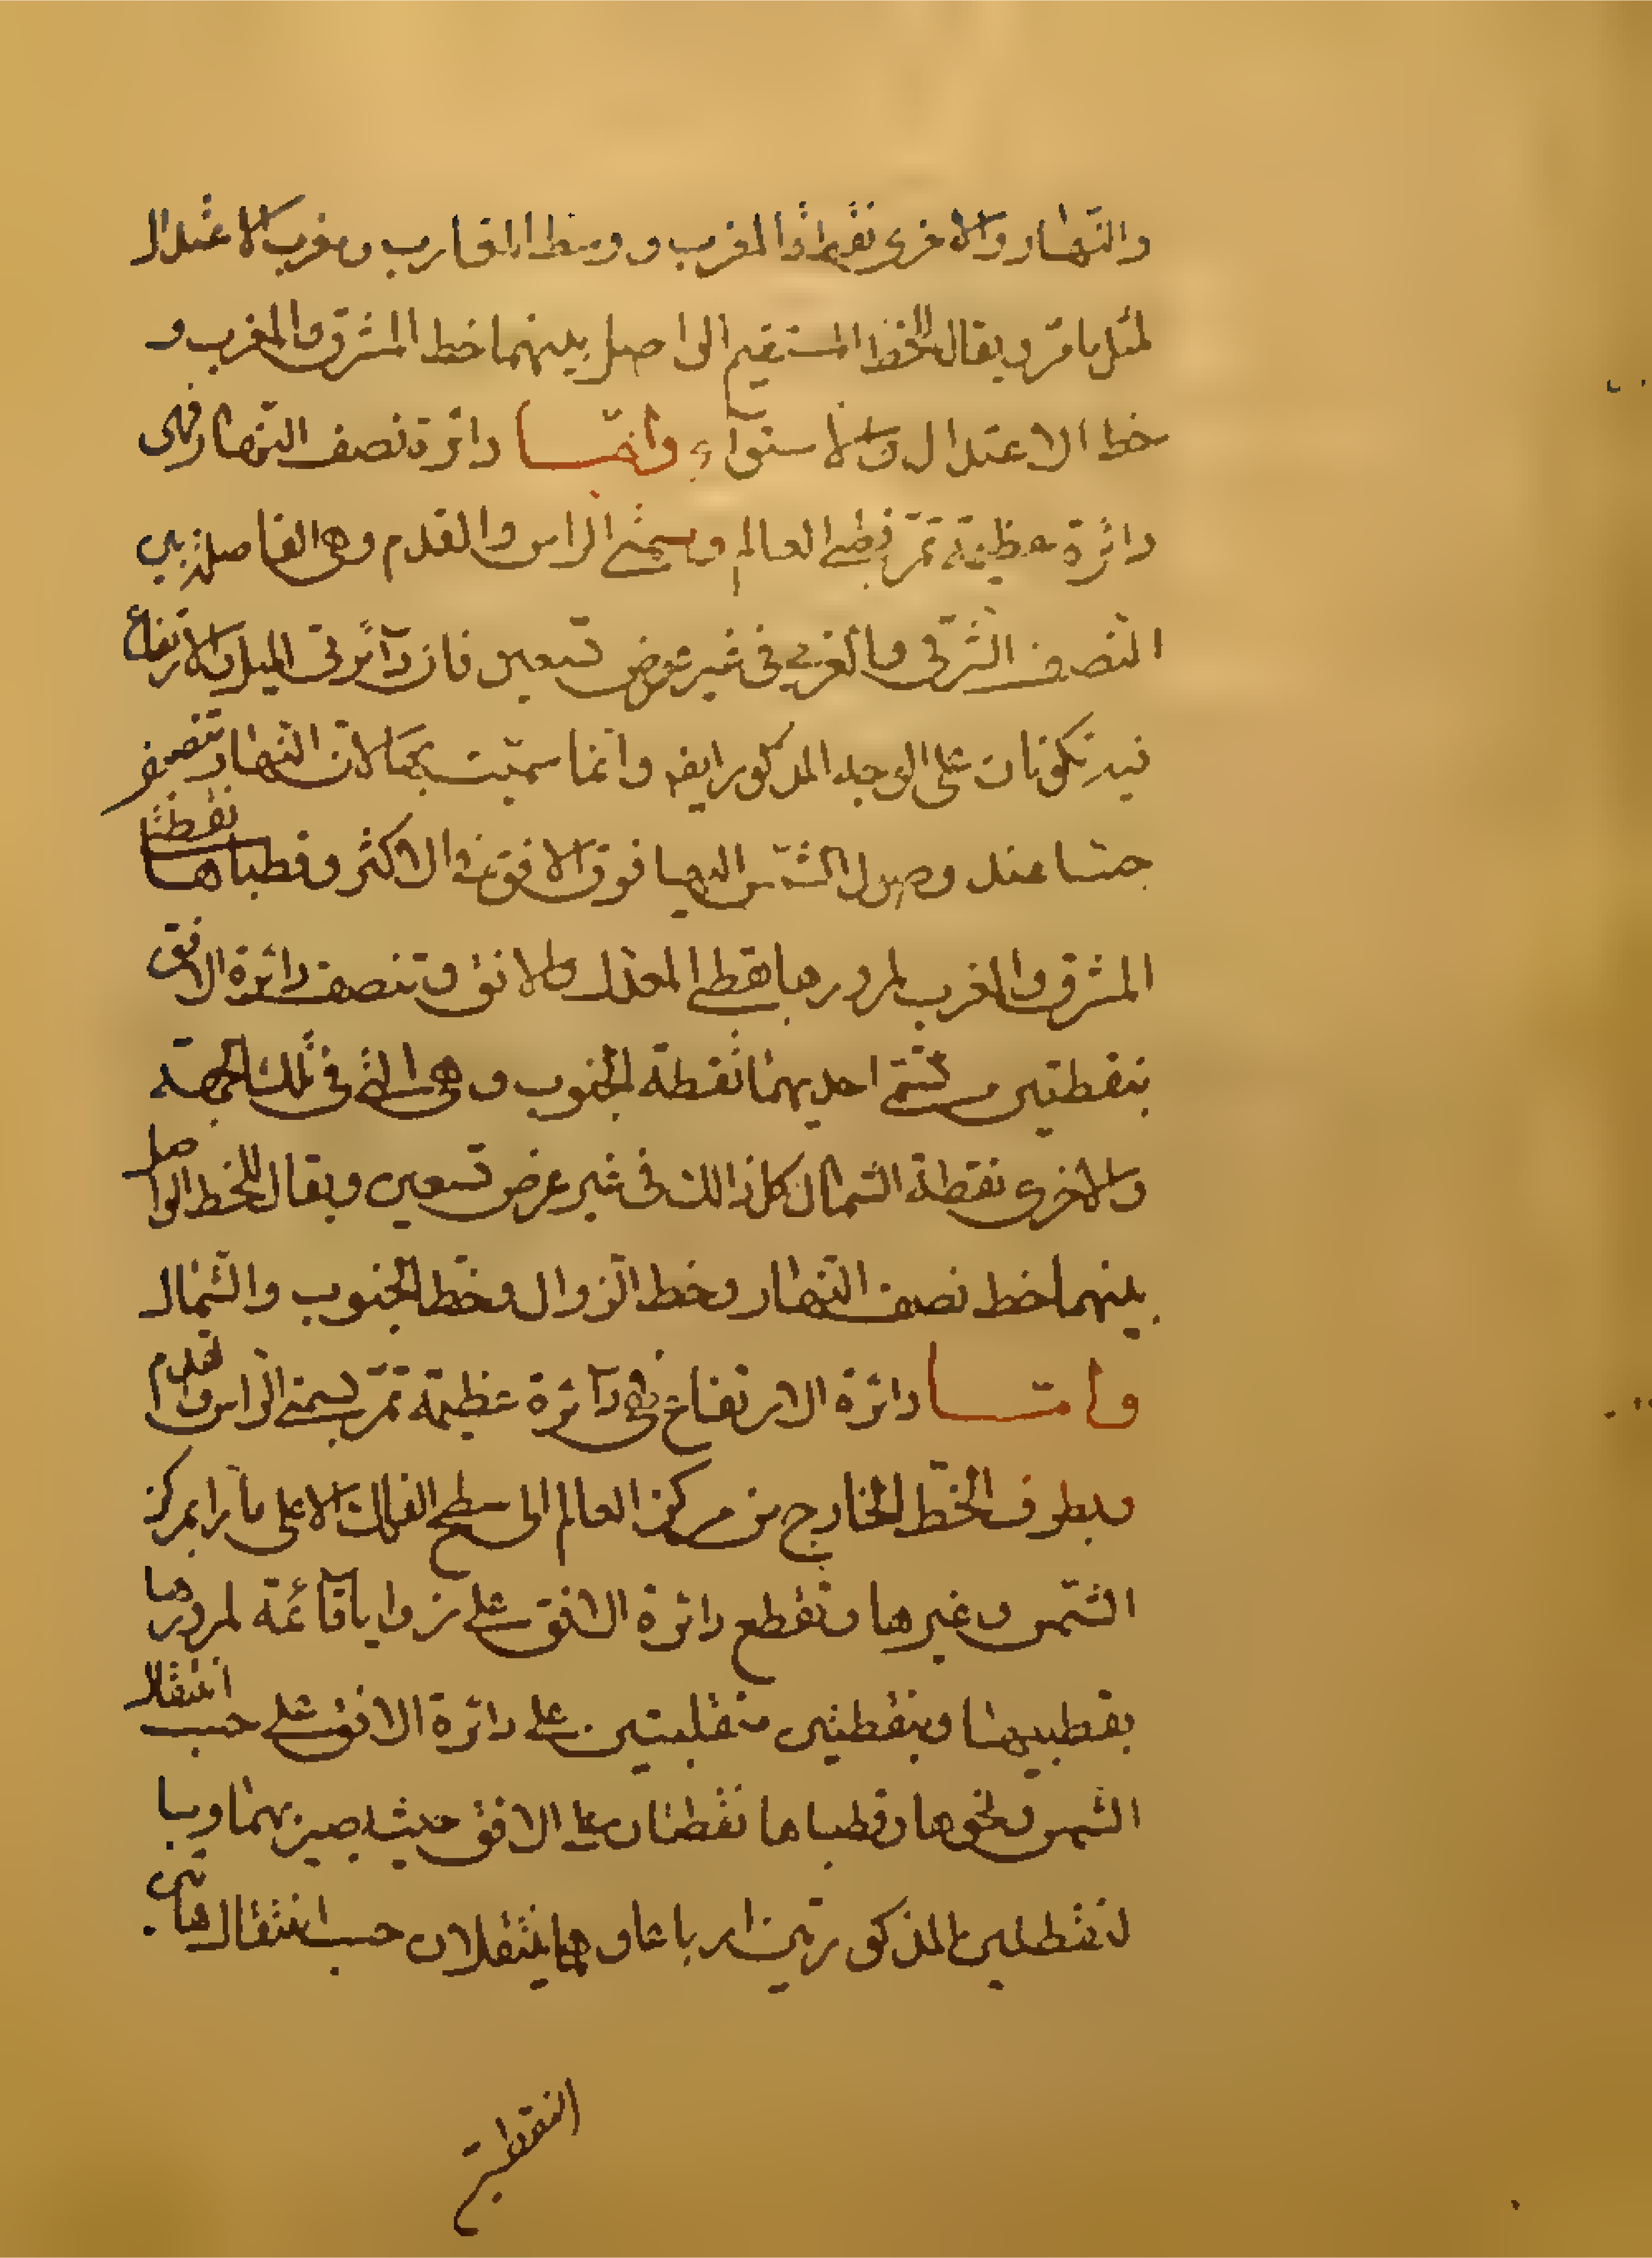 والنهار والاخرى نقطة المغرب ووسط المغارب ومغرب الاعتدال
لمثل ما مرّ ويقال للخط المستقيم الواصل بينهما خط المشرق والمغرب و
خط الاعتدال والاستوآء وامّا دائرة نصف النّهار فهى
دائرة عظيمة تمرّ بقطبى العالم وبسمتى الراس والقدم وهى الفاصلة بين
النّصف الشّرقى والغربى فى غير عرض تسعين فان دآئرتى الميل والارتفاع
فيه تكونان على الوجه المذكور ايضا وانّما سمّيت بها لانّ النّهار تنصف
حسّا عند وصول الشّمس اليها فوق الافق فى الاكثر وقطباها نقطتا
المشرق والمغرب لمرورها بقطبى المعدّل والافق وتنصف دائرة الافق
بنقطتين تسمّى احديهما نقطة الجنوب وهى التى فى تلك الجهة
والاخرى نقطة الشمال كل ذالك فى غير عرض تسعين ويقال للخط الواصل
بينهما خط نصف النّهار وخط الزوال وخطّ الجنوب والشّمال
وامّا دائرة الارتفاع فهى دآئرة عظيمة تمرّ بسمتى الرّاس والقدم
وبطرف الخطّ الخارج من مركز العالم الى سطح الفلك الاعلى مآرا بمركز
الشّمس وغيرها وتقطع دائرة الافق على زوايا قآئمة لمرورها
بقطبيها وبنقطتين منتقلتين على دائرة الافق على حسب انتقال
الشمس ونحوها وقطباها نقطتان على الافق حيث يصير بهما وبا
لنقطتين المذكورتين ارباعا وهما ينتقلان حسب انتقال هاتين
النقطتين